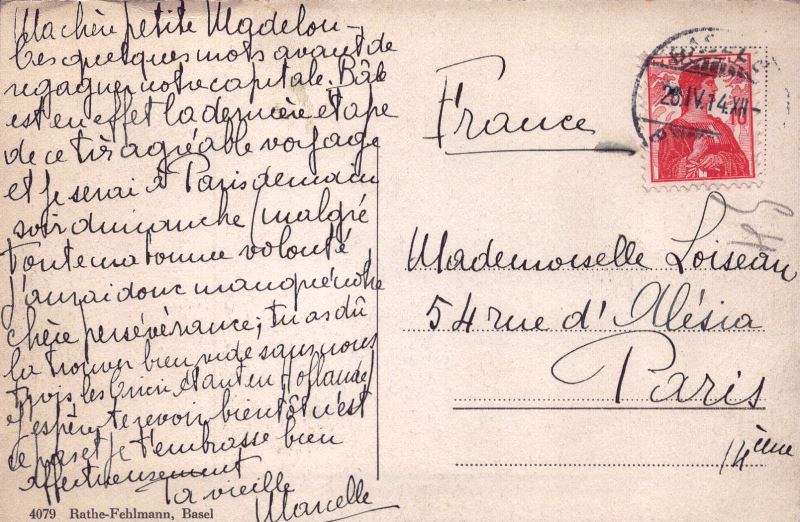 Ma chère petite Madelon –
Ces quelques mots avant de
regagner notre capitale. Bâle
est en effet la dernière étape
de ce très agréable voyage
et je serai à Paris demain
soir dimanche / malgré
toute ma bonne volonté
j'aurai donc manqué notre
chère persévérance; tu as dû
la trouver bien vide sans nous
trois les étant en Hollande/
J'espère te revoir bientôt n'est
ce pas et je t'embrasse bien
affectueusement
Ta vieille
Marcelle
4079 Rathe-Fehlmann, Basel
France
BASEL
26.IV.14.XII-
Mademoiselle Loiseau
54 rue d'Alésia
Paris
14ème